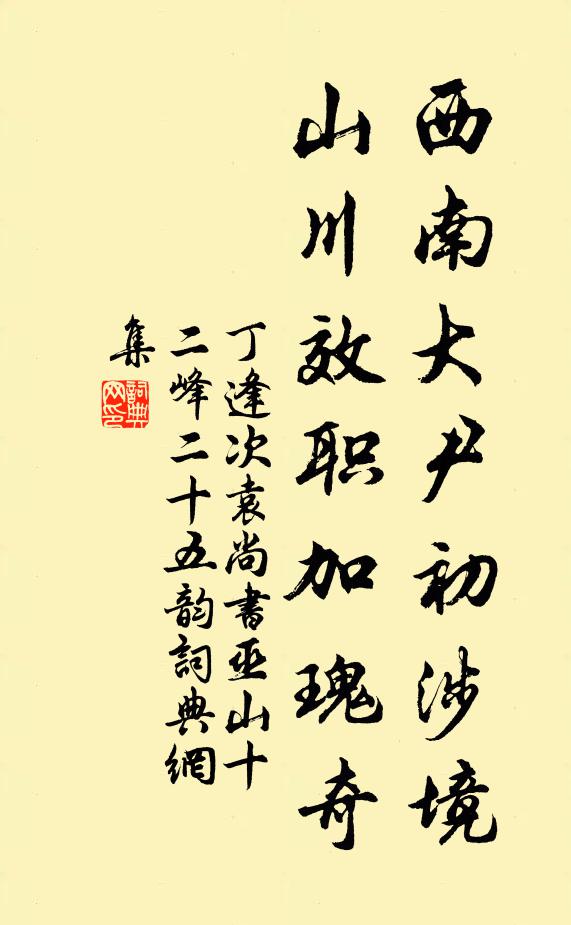 西南大尹初涉境
山川效职加瑰奇
丁逢次袁尚書巫山十
二峰二十五韵詞典網
集
詞典
网印